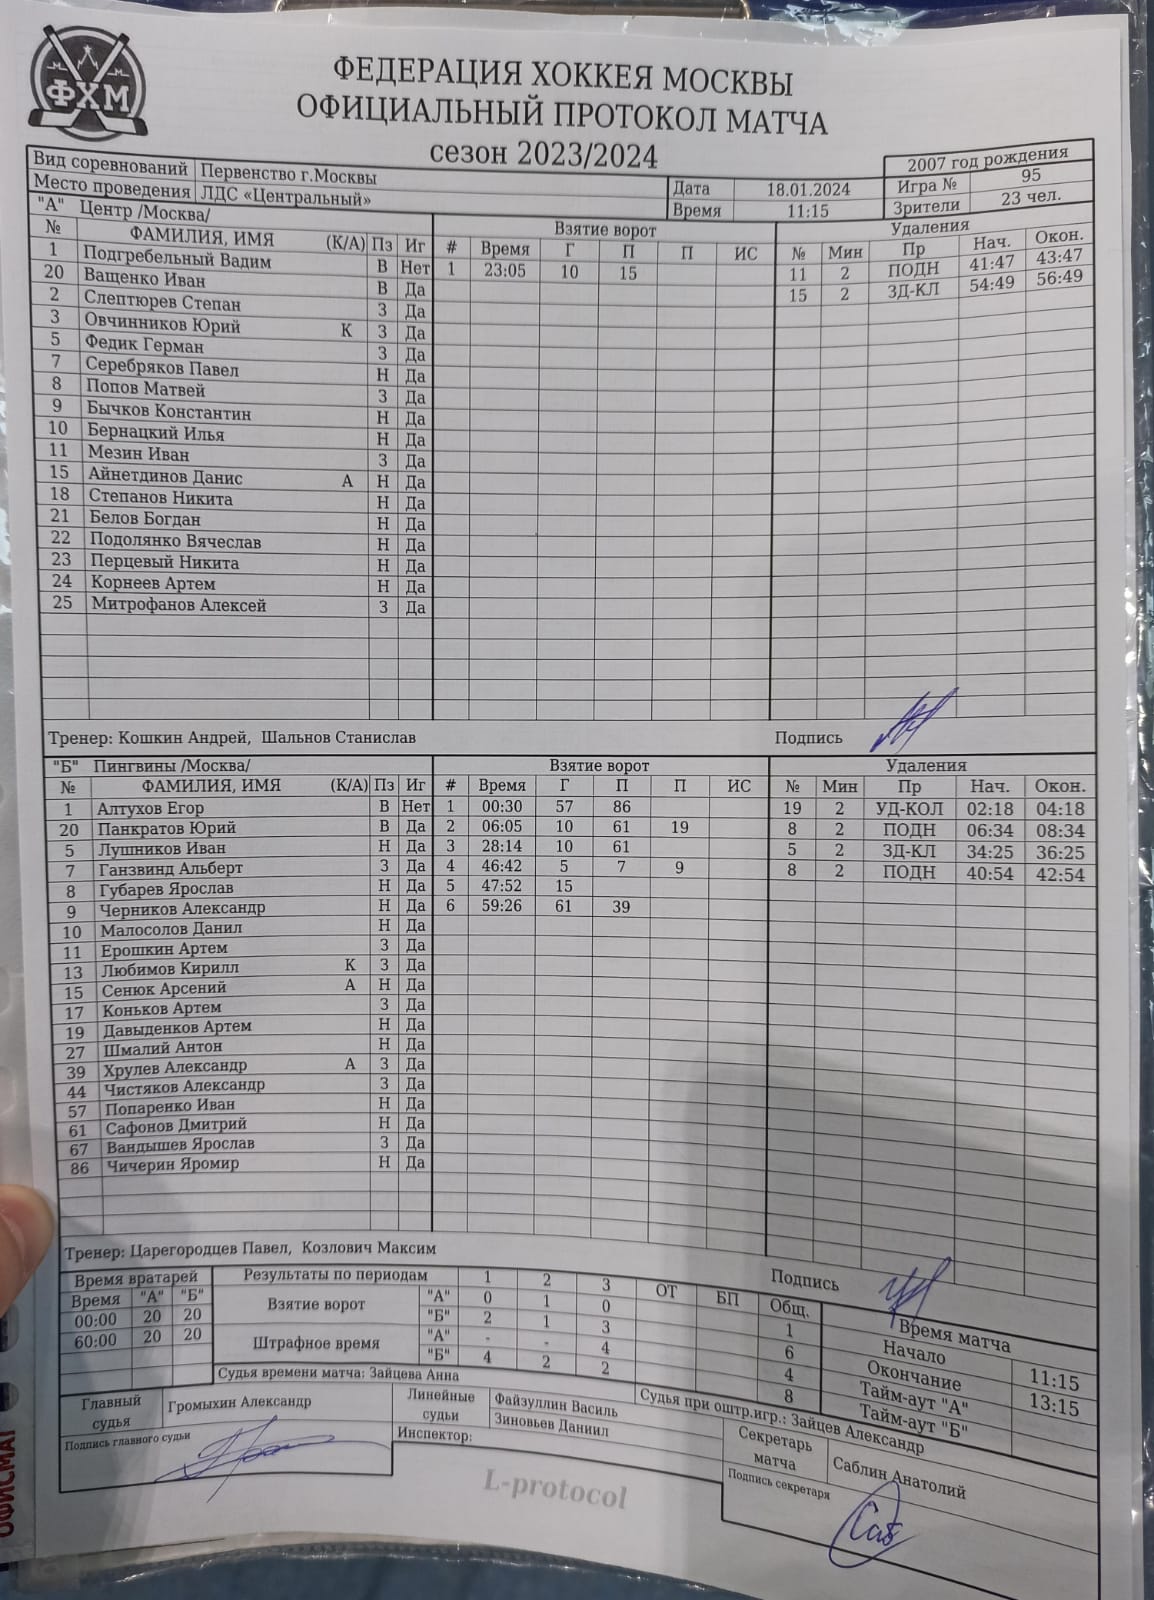 ФХМ
ФЕДЕРАЦИЯ ХОККЕЯ МОСКВЫ
ОФИЦИАЛЬНЫЙ ПРОТОКОЛ МАТЧА
сезон 2023/2024
2007 год рождения
Вид соревнований Первенство г.Москвы Дата 18.01.2024 Игра № 95
Место проведения ЛДС «Центральный» Время 11:15 Зрители 23 чел.
"А" Центр /Москва/ Взятие ворот Удаления
№ ФАМИЛИЯ, ИМЯ (К/А) Пз Иг # Время Г П П ИС № Мин Пр Нач. Окон.
1 Подгребельный Вадим В Нет 1 23:05 10 15 11 2 ПОДН 41:47 43:47
20 Ващенко Иван В Да 15 2 ЗД-КЛ 54:49 56:49
2 Слептюрев Степан З Да
3 Овчинников Юрий К З Да
5 Федик Герман З Да
7 Серебряков Павел Н Да
8 Попов Матвей З Да
9 Бычков Константин Н Да
10 Бернацкий Илья Н Да
11 Мезин Иван З Да
15 Айнетдинов Данис А Н Да
18 Степанов Никита Н Да
21 Белов Богдан Н Да
22 Подолянко Вячеслав Н Да
23 Перцевый Никита Н Да
24 Корнеев Артем Н Да
25 Митрофанов Алексей З Да
Тренер: Кошкин Андрей, Шальнов Станислав Подпись
"Б" Пингвины /Москва/ Взятие ворот Удаления
№ ФАМИЛИЯ, ИМЯ (К/А) Пз Иг # Время Г П П ИС № Мин Пр Нач. Окон.
1 Алтухов Егор В Нет 1 00:30 57 86 19 2 УД-КОЛ 02:18 04:18
20 Панкратов Юрий В Да 2 06:05 10 61 19 8 2 ПОДН 06:34 08:34
5 Лушников Иван Н Да 3 28:14 10 61 5 2 ЗД-КЛ 34:25 36:25
7 Ганзвинд Альберт З Да 4 46:42 5 7 9 8 2 ПОДН 40:54 42:54
8 Губарев Ярослав Н Да 5 47:52 15
9 Черников Александр Н Да 6 59:26 61 39
10 Малосолов Данил Н Да
11 Ерошкин Артем З Да
13 Любимов Кирилл К З Да
15 Сенюк Арсений А Н Да
17 Коньков Артем З Да
19 Давыденков Артем Н Да
27 Шмалий Антон Н Да
39 Хрулев Александр А З Да
44 Чистяков Александр З Да
57 Попаренко Иван Н Да
61 Сафонов Дмитрий Н Да
67 Вандышев Ярослав З Да
86 Чичерин Яромир Н Да
Тренер: Царегородцев Павел, Козлович Максим Подпись
Время вратарей Результаты по периодам 1 2 3 ОТ БП Общ. Время матча
Время "А" "Б" Взятие ворот "А" 0 1 0 1 Начало 11:15
00:00 20 20 "Б" 2 1 3 6 Окончание 13:15
60:00 20 20 Штрафное время "А" - - 4 4 Тайм-аут "А"
"Б" 4 2 2 8 Тайм-аут "Б"
Судья времени матча: Зайцева Анна Судья при оштр.игр.: Зайцев Александр
Главный судья Громыхин Александр Линейные судьи Файзуллин Василь
Зиновьев Даниил
Секретарь матча Саблин Анатолий
Подпись главного судьи Инспектор: Подпись секретаря
Саб
L-protocol